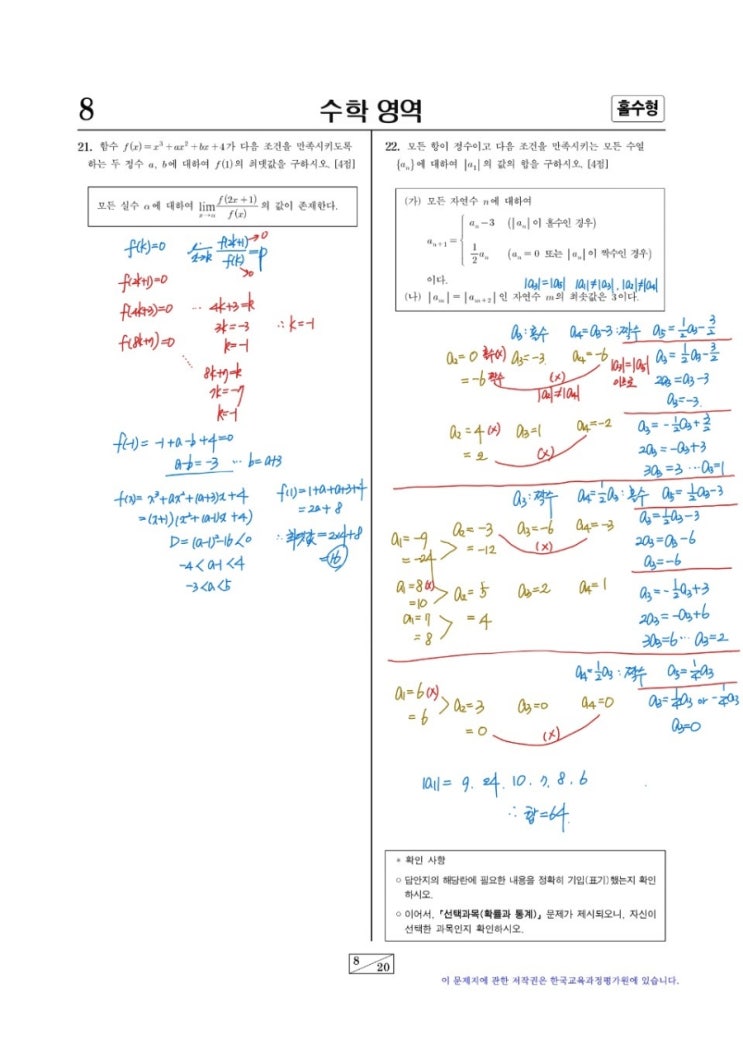 8
수학 영역
홀수형
21. 함수 f(x)=x³+ax²+bx+4가 다음 조건을 만족시키도록
하는 두 정수 a, b에 대하여 f(1)의 최댓값을 구하시오. [4점]
모든 실수 α에 대하여 lim x→α f(2x+1)/f(x) 의 값이 존재한다.
f(k)=0 lim x→k f(2k+1)/f(k) = p
→0
→0
f(2k+1)=0
f(4k+3)=0 ⋯ 4k+3=k
3k=-3 ∴k=-1
k=-1
f(8k+7)=0
8k+7=k
7k=-7
k=-1
f(-1)=-1+a-b+4=0
a-b=-3 ⋯ b=a+3
f(x)=x³+ax²+(a+3)x+4
=(x+1)(x²+(a-1)x+4)
D=(a-1)²-16<0
-4<a-1<4
-3<a<5
f(1)=1+a+a+3+4
=2a+8
∴최댓값=2×4+8
=16
22. 모든 항이 정수이고 다음 조건을 만족시키는 모든 수열
{aₙ}에 대하여 |a₁|의 값의 합을 구하시오. [4점]
(가) 모든 자연수 n에 대하여
aₙ₊₁= { aₙ-3 (|aₙ|이 홀수인 경우)
1/2 aₙ (aₙ=0 또는 |aₙ|이 짝수인 경우)
이다. |a₃|=|a₅| |a₁|≠|a₃|, |a₂|≠|a₄|
(나) |aₘ|=|aₘ₊₂|인 자연수 m의 최솟값은 3이다.
a₃:홀수 a₄=a₃-3:짝수 a₅=1/2a₃-3/2
a₂=0 홀수(x) a₃=-3 a₄=-6 |a₃|=|a₅| a₃=1/2a₃-3/2
=-6 짝수 (x) 이므로 2a₃=a₃-3
|a₂|≠|a₄| a₃=-3
a₂=4(x) a₃=1 a₄=-2 a₃=-1/2a₃+3/2
=2 (x) 2a₃=-a₃+3
3a₃=3 ⋯a₃=1
a₃:짝수 a₄=1/2a₃:홀수 a₅=1/2a₃-3
a₁=-9 a₂=-3 a₃=-6 a₄=-3 a₃=1/2a₃-3
=-24 =-12 (x) 2a₃=a₃-6
a₃=-6
a₁=8(x) a₂=5 a₃=2 a₄=1 a₃=-1/2a₃+3
=10 2a₃=-a₃+6
a₁=7 =4 3a₃=6 ⋯a₃=2
=8
a₄=1/2a₃:짝수 a₅=1/4a₃
a₁=6(x) a₂=3 a₃=0 a₄=0 a₃=1/4a₃ or -1/4a₃
=6 =0 (x) a₃=0
|a₁|= 9, 24, 10, 7, 8, 6
∴ 합=64.
* 확인 사항
○ 답안지의 해당란에 필요한 내용을 정확히 기입(표기)했는지 확인
하시오.
○ 이어서, 「선택과목(확률과 통계)」 문제가 제시되오니, 자신이
선택한 과목인지 확인하시오.
8
20
이 문제지에 관한 저작권은 한국교육과정평가원에 있습니다.